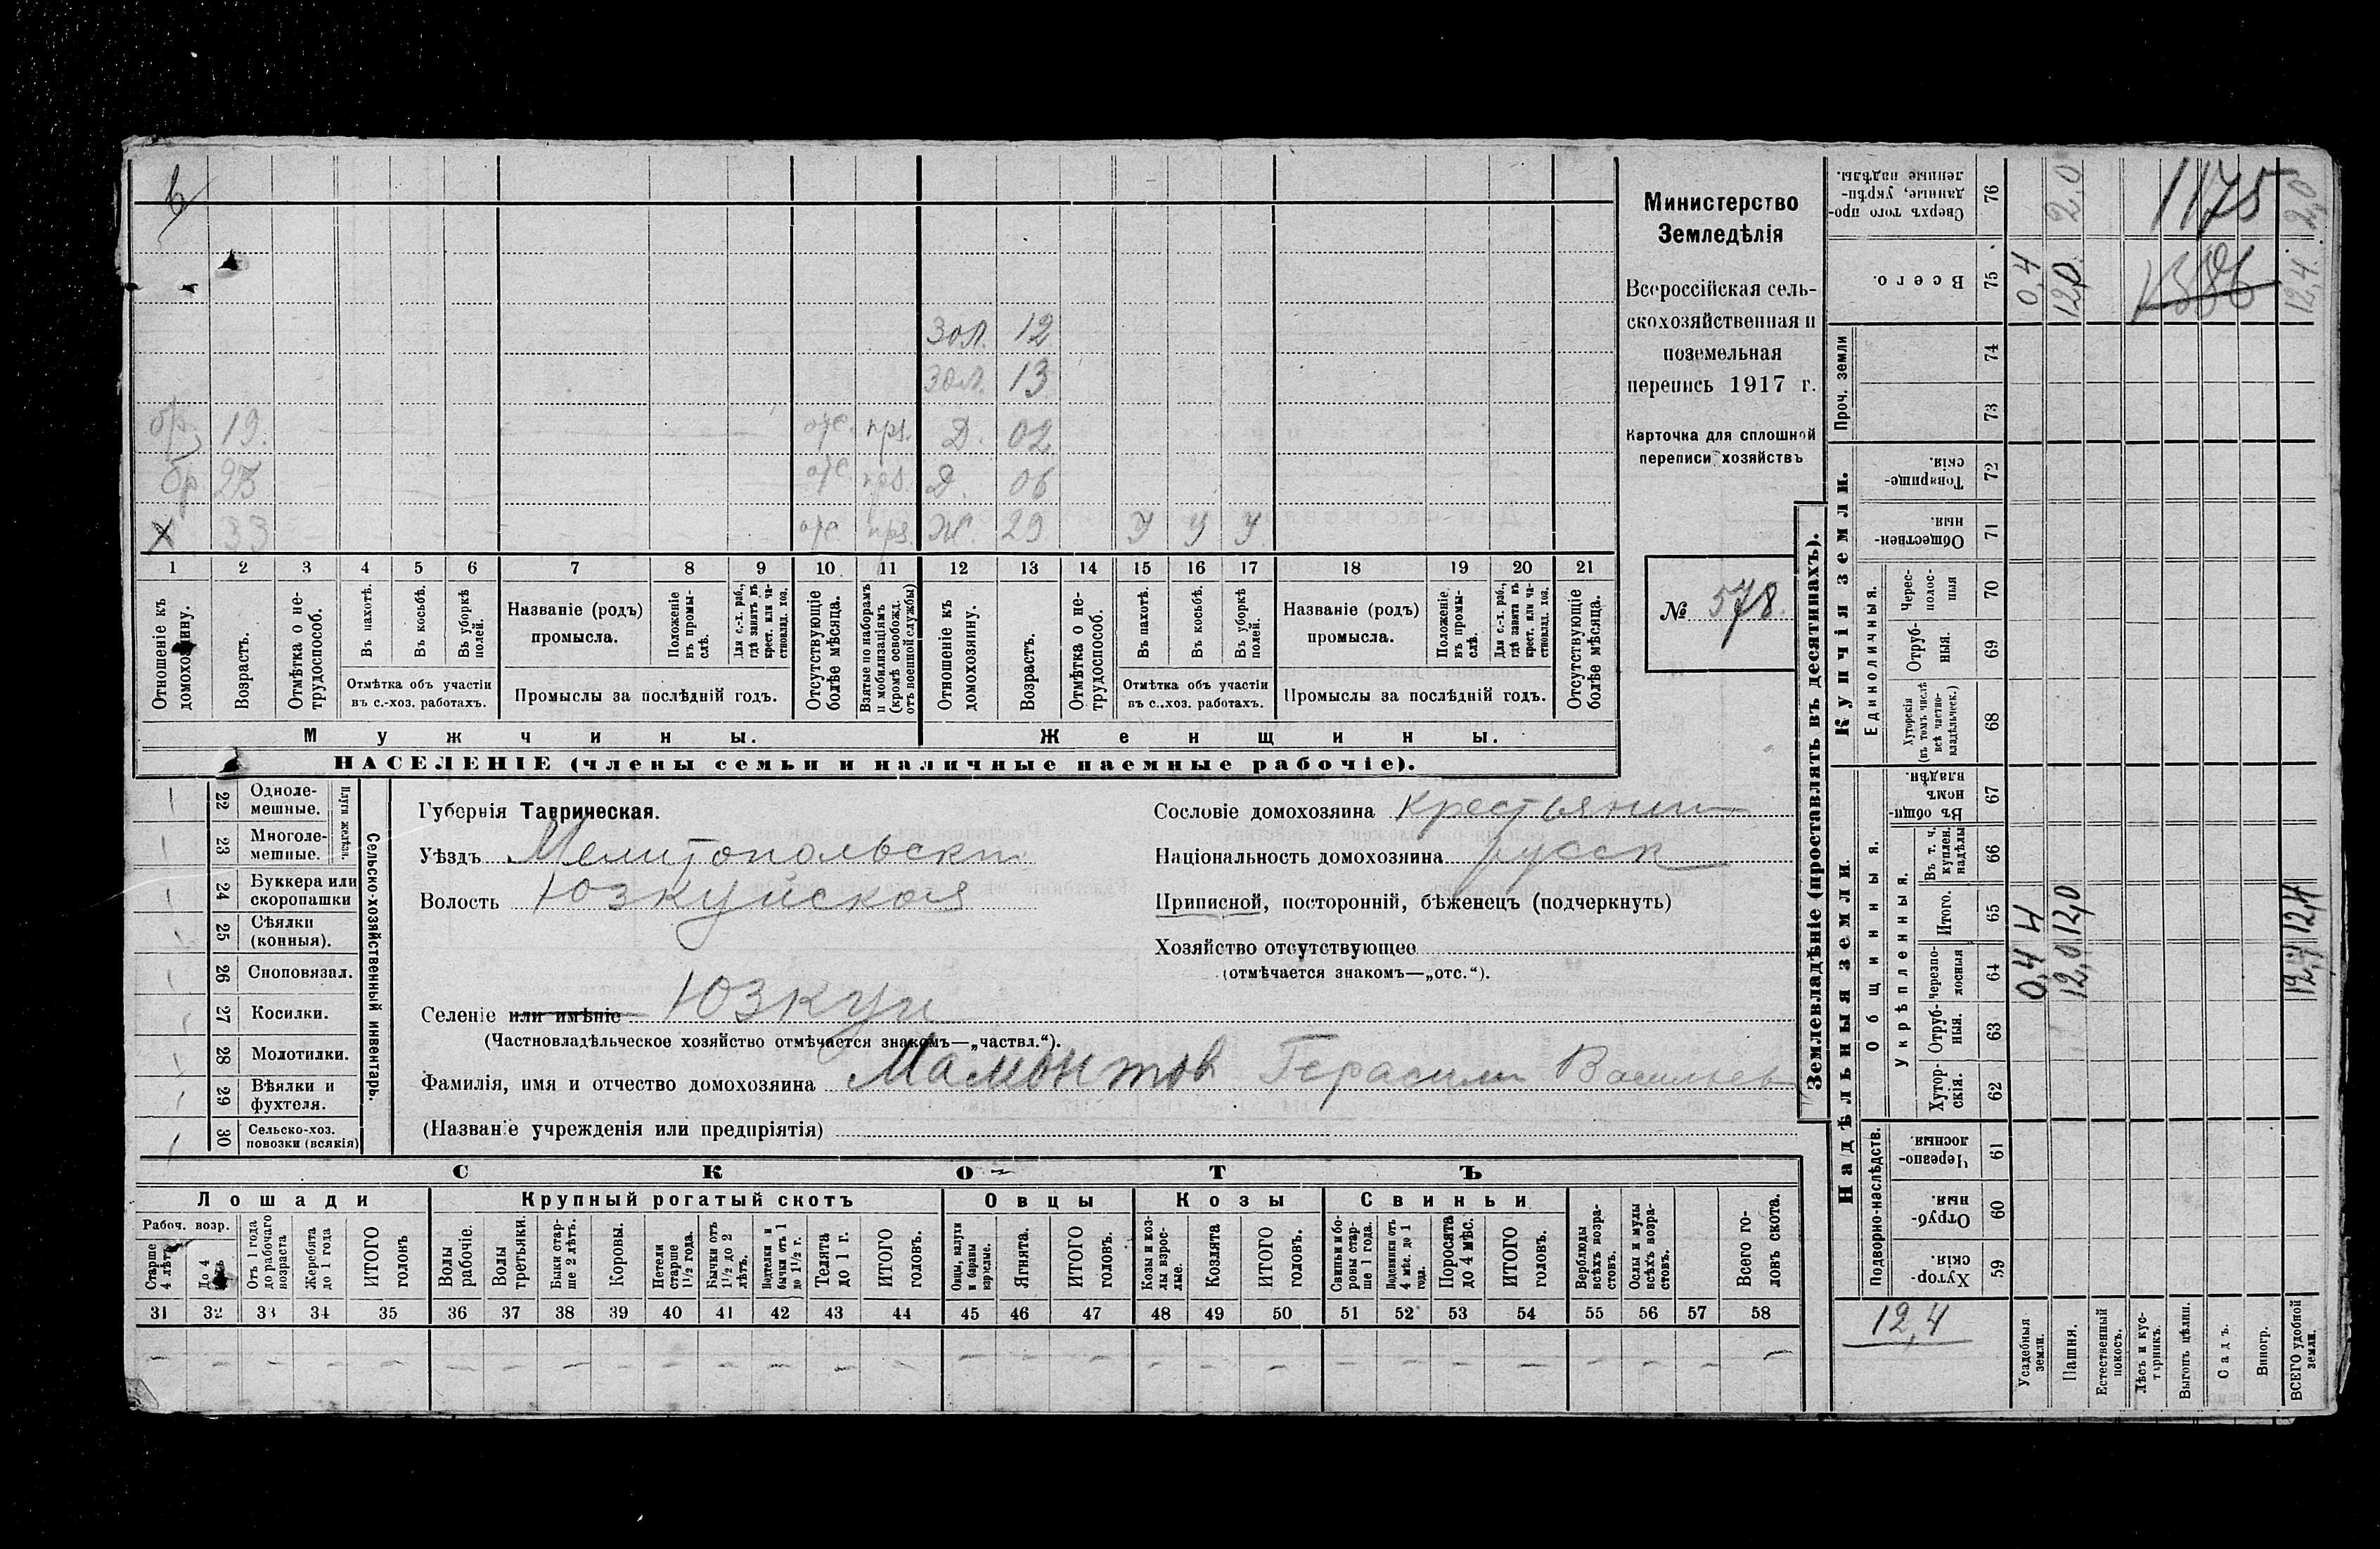 6
Зол. 12
Зол. 13
бр. 19. отс. прз. Д. 02
бр 23 отс. прз. Д. 06
X 33 отс. прз. Ж. 29 У У У
1 2 3 4 5 6 7 8 9 10 11 12 13 14 15 16 17 18 19 20 21
Отношеніе къ домохозяину.
Возрастъ.
Отмѣтка о не-трудоспособ.
Въ пахотѣ.
Въ косьбѣ.
Въ уборкѣ полей.
Названіе (родъ) промысла.
Положеніе въ промы-слѣ.
Для с.-х. раб., гдѣ занятъ въ крест. или ча-стновлад. хоз.
Отсутствующіе болѣе мѣсяца.
Взятые по наборамъ и мобилизаціямъ (кромѣ освобожд. отъ военной службы)
Отношеніе къ домохозяину.
Возрастъ.
Отмѣтка о не-трудоспособ.
Въ пахотѣ.
Въ косьбѣ.
Въ уборкѣ полей.
Названіе (родъ) промысла.
Положеніе въ промы-слѣ.
Для с.-х. раб., гдѣ занята въ крест. или ча-стновлад. хоз.
Отсутствующіе болѣе мѣсяца.
Отмѣтка объ участіи въ с.-хоз. работахъ.
Промыслы за послѣдній годъ.
Отмѣтка объ участіи въ с.-хоз. работахъ.
Промыслы за послѣдній годъ.
Мужчины.
Женщины.
НАСЕЛЕНІЕ (члены семьи и наличные наемные рабочіе).
Министерство
Земледѣлія
Всероссійская сель-
скохозяйственная и
поземельная
перепись 1917 г.
Карточка для сплошной
переписи хозяйствъ
№ 578.
22 Одноле-мешные.
23 Многоле-мешные.
Плуги желѣз.
24 Буккера или скоропашки
25 Сѣялки (конныя).
26 Сноповязал.
27 Косилки.
28 Молотилки.
29 Вѣялки и фухтеля.
30 Сельско-хоз. повозки (всякія)
Сельско-хозяйственный инвентарь.
Губернія Таврическая.
Уѣздъ Мелитопольскій
Волость Юзкуйская
Селеніе или имѣніе Юзкуи
(Частновладѣльческое хозяйство отмѣчается знакомъ—„частвл.“).
Фамилія, имя и отчество домохозяина Мамонтов Герасим Васильев
(Названіе учрежденія или предпріятія)
Сословіе домохозяина Крестьянин
Національность домохозяина русск
Приписной, посторонній, бѣженецъ (подчеркнуть)
Хозяйство отсутствующее
(отмѣчается знакомъ—„отс.“).
СКОТЪ
Лошади
Крупный рогатый скотъ
Овцы
Козы
Свиньи
Рабоч. возр.
Старше 4 лѣтъ
До 4
Отъ 1 года до рабочаго возраста
Жеребята до 1 года
ИТОГО головъ
Волы рабочіе.
Волы третьяки.
Быки стар-ше 2 лѣтъ.
Коровы.
Нетели старше 1½ года.
Бычки отъ 1½ до 2 лѣтъ.
Подтелки и бычки отъ 1 до 1½ г.
Телята до 1 г.
ИТОГО головъ.
Овцы, валухи и бараны взрослые.
Ягнята.
ИТОГО головъ.
Козы и коз-лы взрос-лые.
Козлята
ИТОГО головъ.
Свиньи и бо-ровы стар-ше 1 года.
Подсвинки отъ 4 мѣс. до 1 года.
Поросята до 4 мѣс.
ИТОГО головъ.
Верблюды всѣхъ возра-стовъ.
Ослы и мулы всѣхъ возра-стовъ.
Всего го-ловъ скота.
31 32 33 34 35 36 37 38 39 40 41 42 43 44 45 46 47 48 49 50 51 52 53 54 55 56 57 58
Землевладѣніе (проставлять въ десятинахъ).
Надѣльныя земли.
Купчія земли.
Проч. земли
Подворно-наслѣдств.
Общинныя.
Укрѣпленныя.
Единоличныя.
Сверхъ того про-данные, укрѣп-ленные надѣлы. 76
Всего. 75
74
73
Товарище-скія. 72
Обществен-ныя. 71
Черес-полос-ныя 70
Отруб-ныя. 69
Хуторскія (въ томъ числѣ всѣ частно-владѣльческ.) 68
Въ общи-номъ владѣн. 67
Въ т. ч. куплен. надѣлы 66
Итого. 65
Черезпо-лосныя 64
Отруб-ныя. 63
Хутор-скія. 62
Черезпо-лосныя. 61
Отруб-ныя. 60
Хутор-скія. 59
Усадебныя земли. 0,4 0,4
Пашня. 12,0 12,0 12,0 2,0
Естественный покосъ.
Лѣсъ и кус-тарникъ.
Выгонъ цѣлин.
Садъ.
Виногр.
ВСЕГО удобной земли. 12,4 12,4 12,4 2,0
1175
12,4